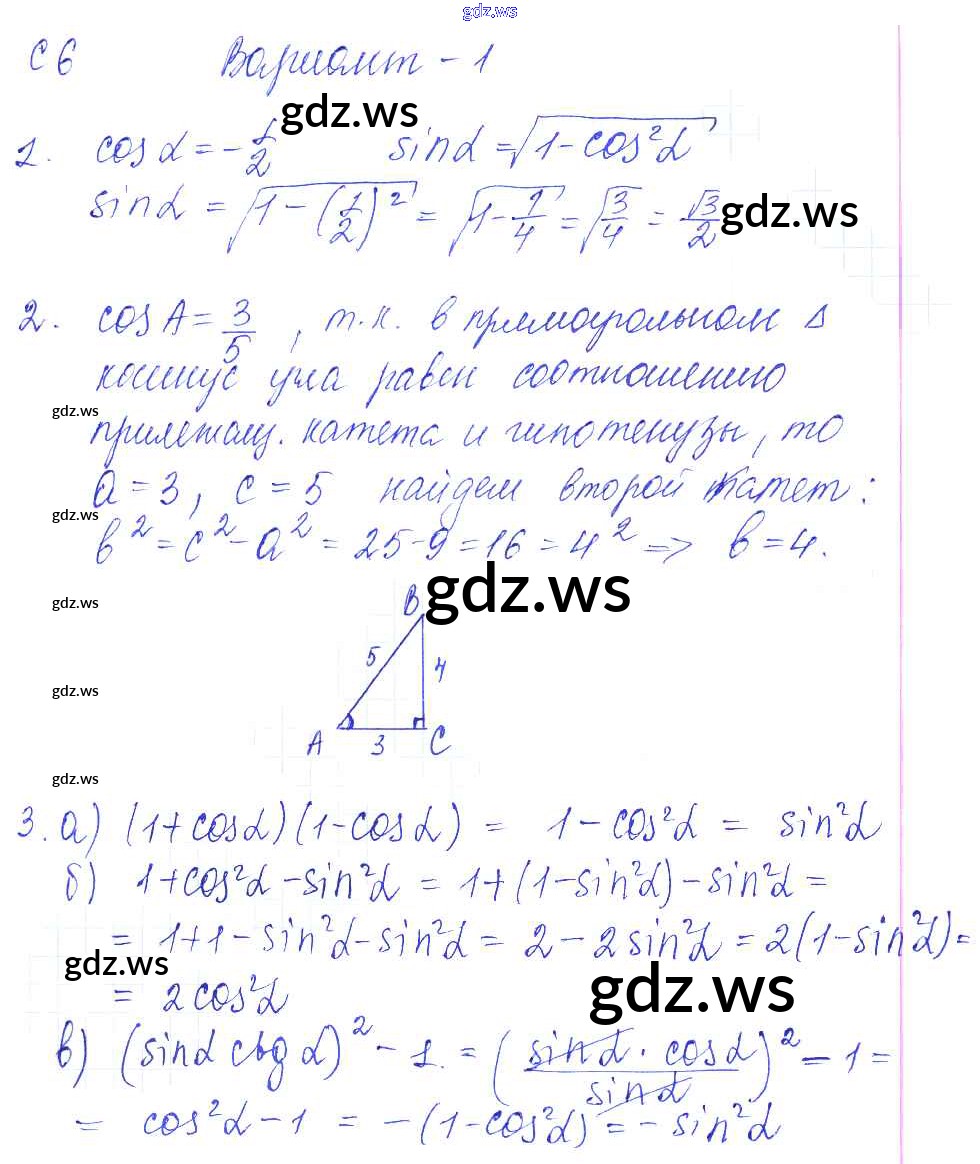 gdz.ws
С 6 Вариант - 1
gdz.ws
1. cos α = -1/2 sin α = √(1 - cos²α)
sin α = √(1 - (1/2)²) = √(1 - 1/4) = √(3/4) = √3/2 gdz.ws
2. cos A = 3/5, т.к. в прямоугольном Δ
косинус угла равен соотношению
gdz.ws
прилежащ. катета и гипотенузы, то
a = 3, c = 5 найдем второй катет:
gdz.ws
b² = c² - a² = 25 - 9 = 16 = 4² => b = 4.
B gdz.ws
gdz.ws
5 4
gdz.ws
A 3 C
gdz.ws
3. а) (1 + cos α)(1 - cos α) = 1 - cos²α = sin²α
б) 1 + cos²α - sin²α = 1 + (1 - sin²α) - sin²α =
= 1 + 1 - sin²α - sin²α = 2 - 2 sin²α = 2(1 - sin²α) =
gdz.ws
= 2 cos²α gdz.ws
в) (sin α ctg α)² - 1. = (sin α · cos α / sin α)² - 1 =
= cos²α - 1 = -(1 - cos²α) = - sin²α